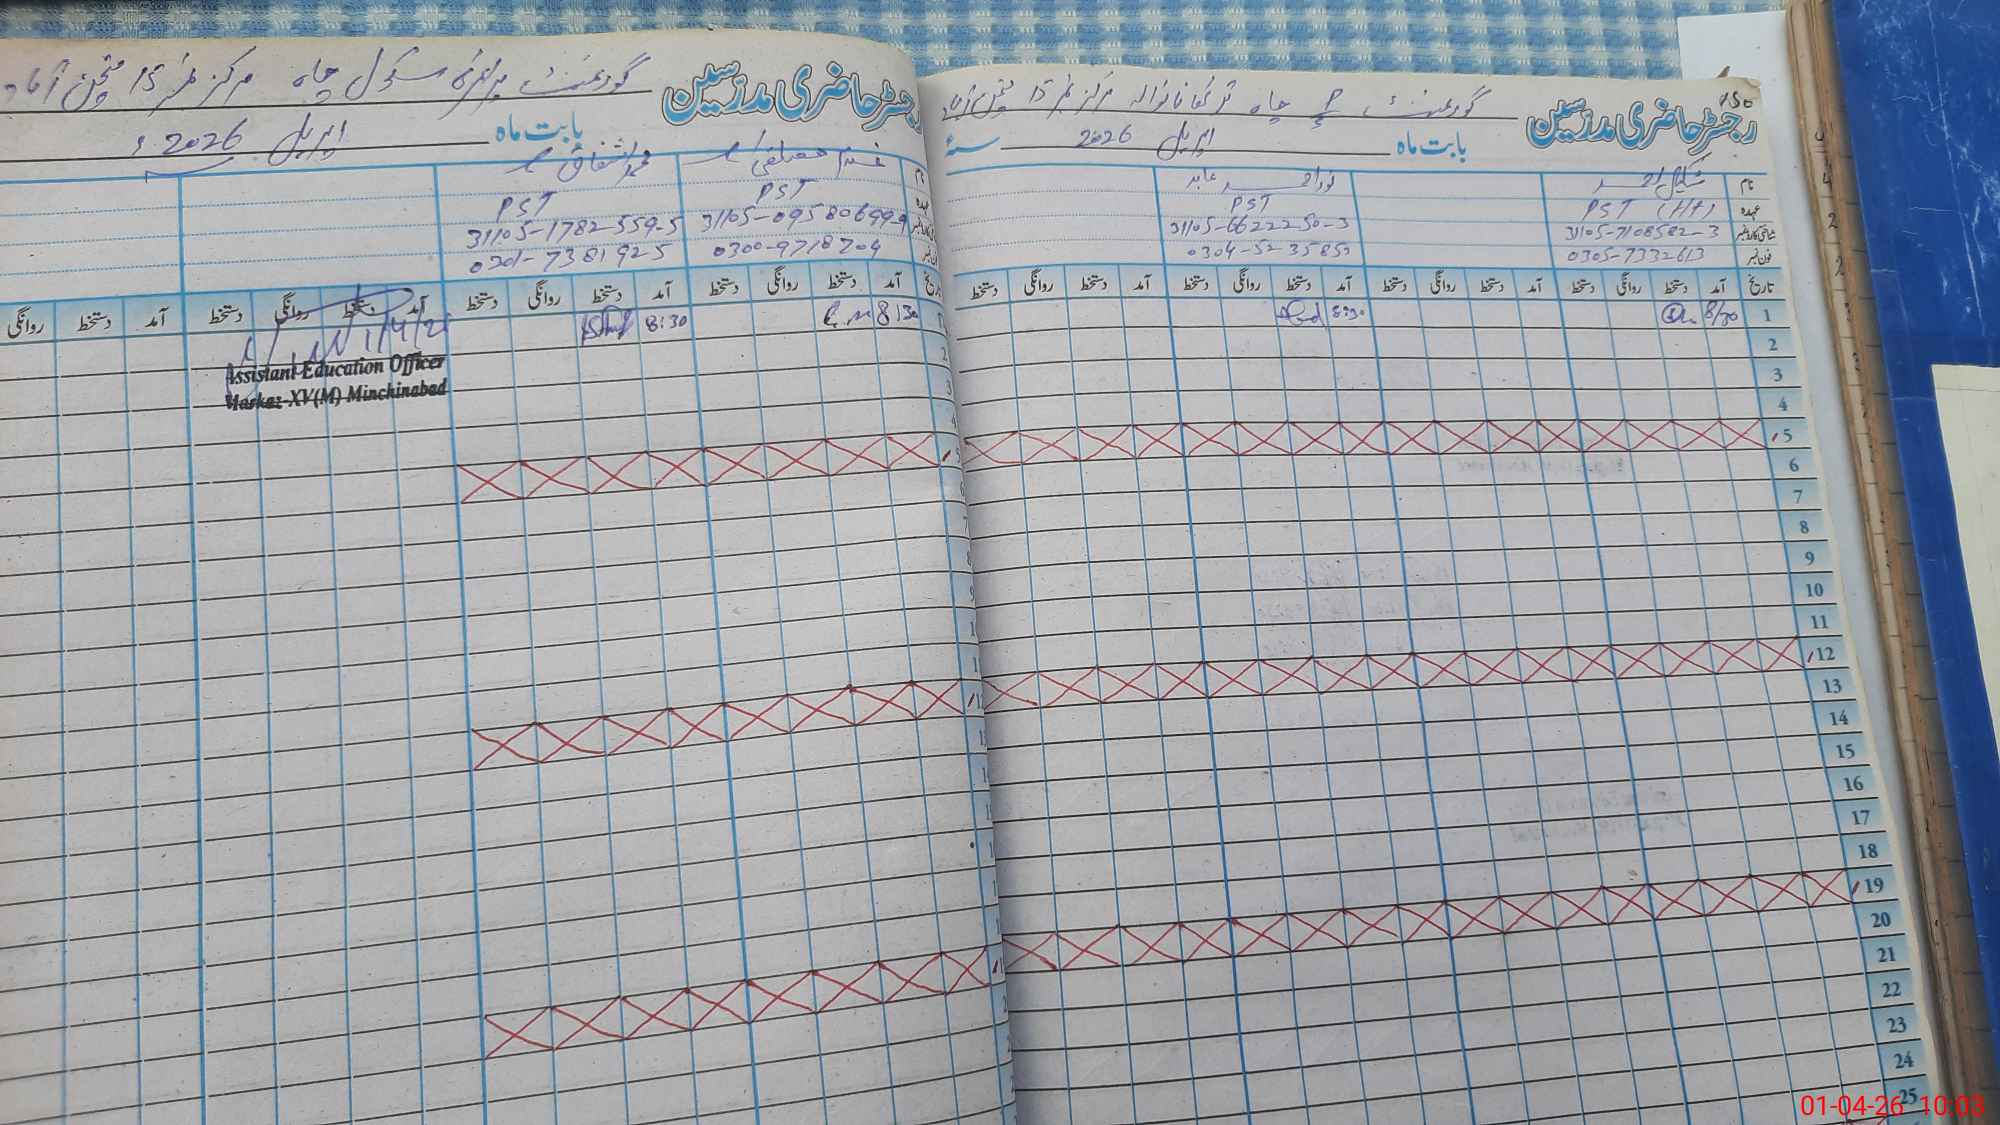 150
رجسٹر حاضری مدرسین
گورنمنٹ چاہ مرکز نمبر 15 منچن آباد
بابت ماہ اپریل 2026 سنہ
نام شکیل احمد
نور احمد عابد
عہدہ PST (HT)
PST
31105-7108582-3
31105-6622250-3
فون نمبر 0305-7332613
0304-5235853
تاریخ آمد دستخط روانگی دستخط آمد دستخط روانگی دستخط آمد دستخط روانگی دستخط آمد دستخط روانگی دستخط
1 8/30 8:30
2
3
4
5
6
7
8
9
10
11
12
13
14
15
16
17
18
19
20
21
22
23
24
25
رجسٹر حاضری مدرسین
گورنمنٹ پرائمری سکول چاہ مرکز نمبر 15 منچن آباد
بابت ماہ اپریل 2026ء
غلام مصطفیٰ
محمد اشفاق
PST
PST
31105-0958069-9
31105-1782559-5
0300-9718704
0301-7381925
آمد دستخط روانگی دستخط آمد دستخط روانگی دستخط آمد دستخط روانگی دستخط آمد دستخط روانگی
8:30 8:30
1/4/26
Assistant Education Officer
Markaz-XV(M) Minchinabad
01-04-26 10:03